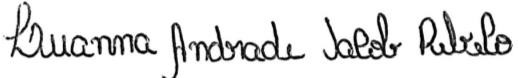 Luanna Andrade Jacob Rebelo